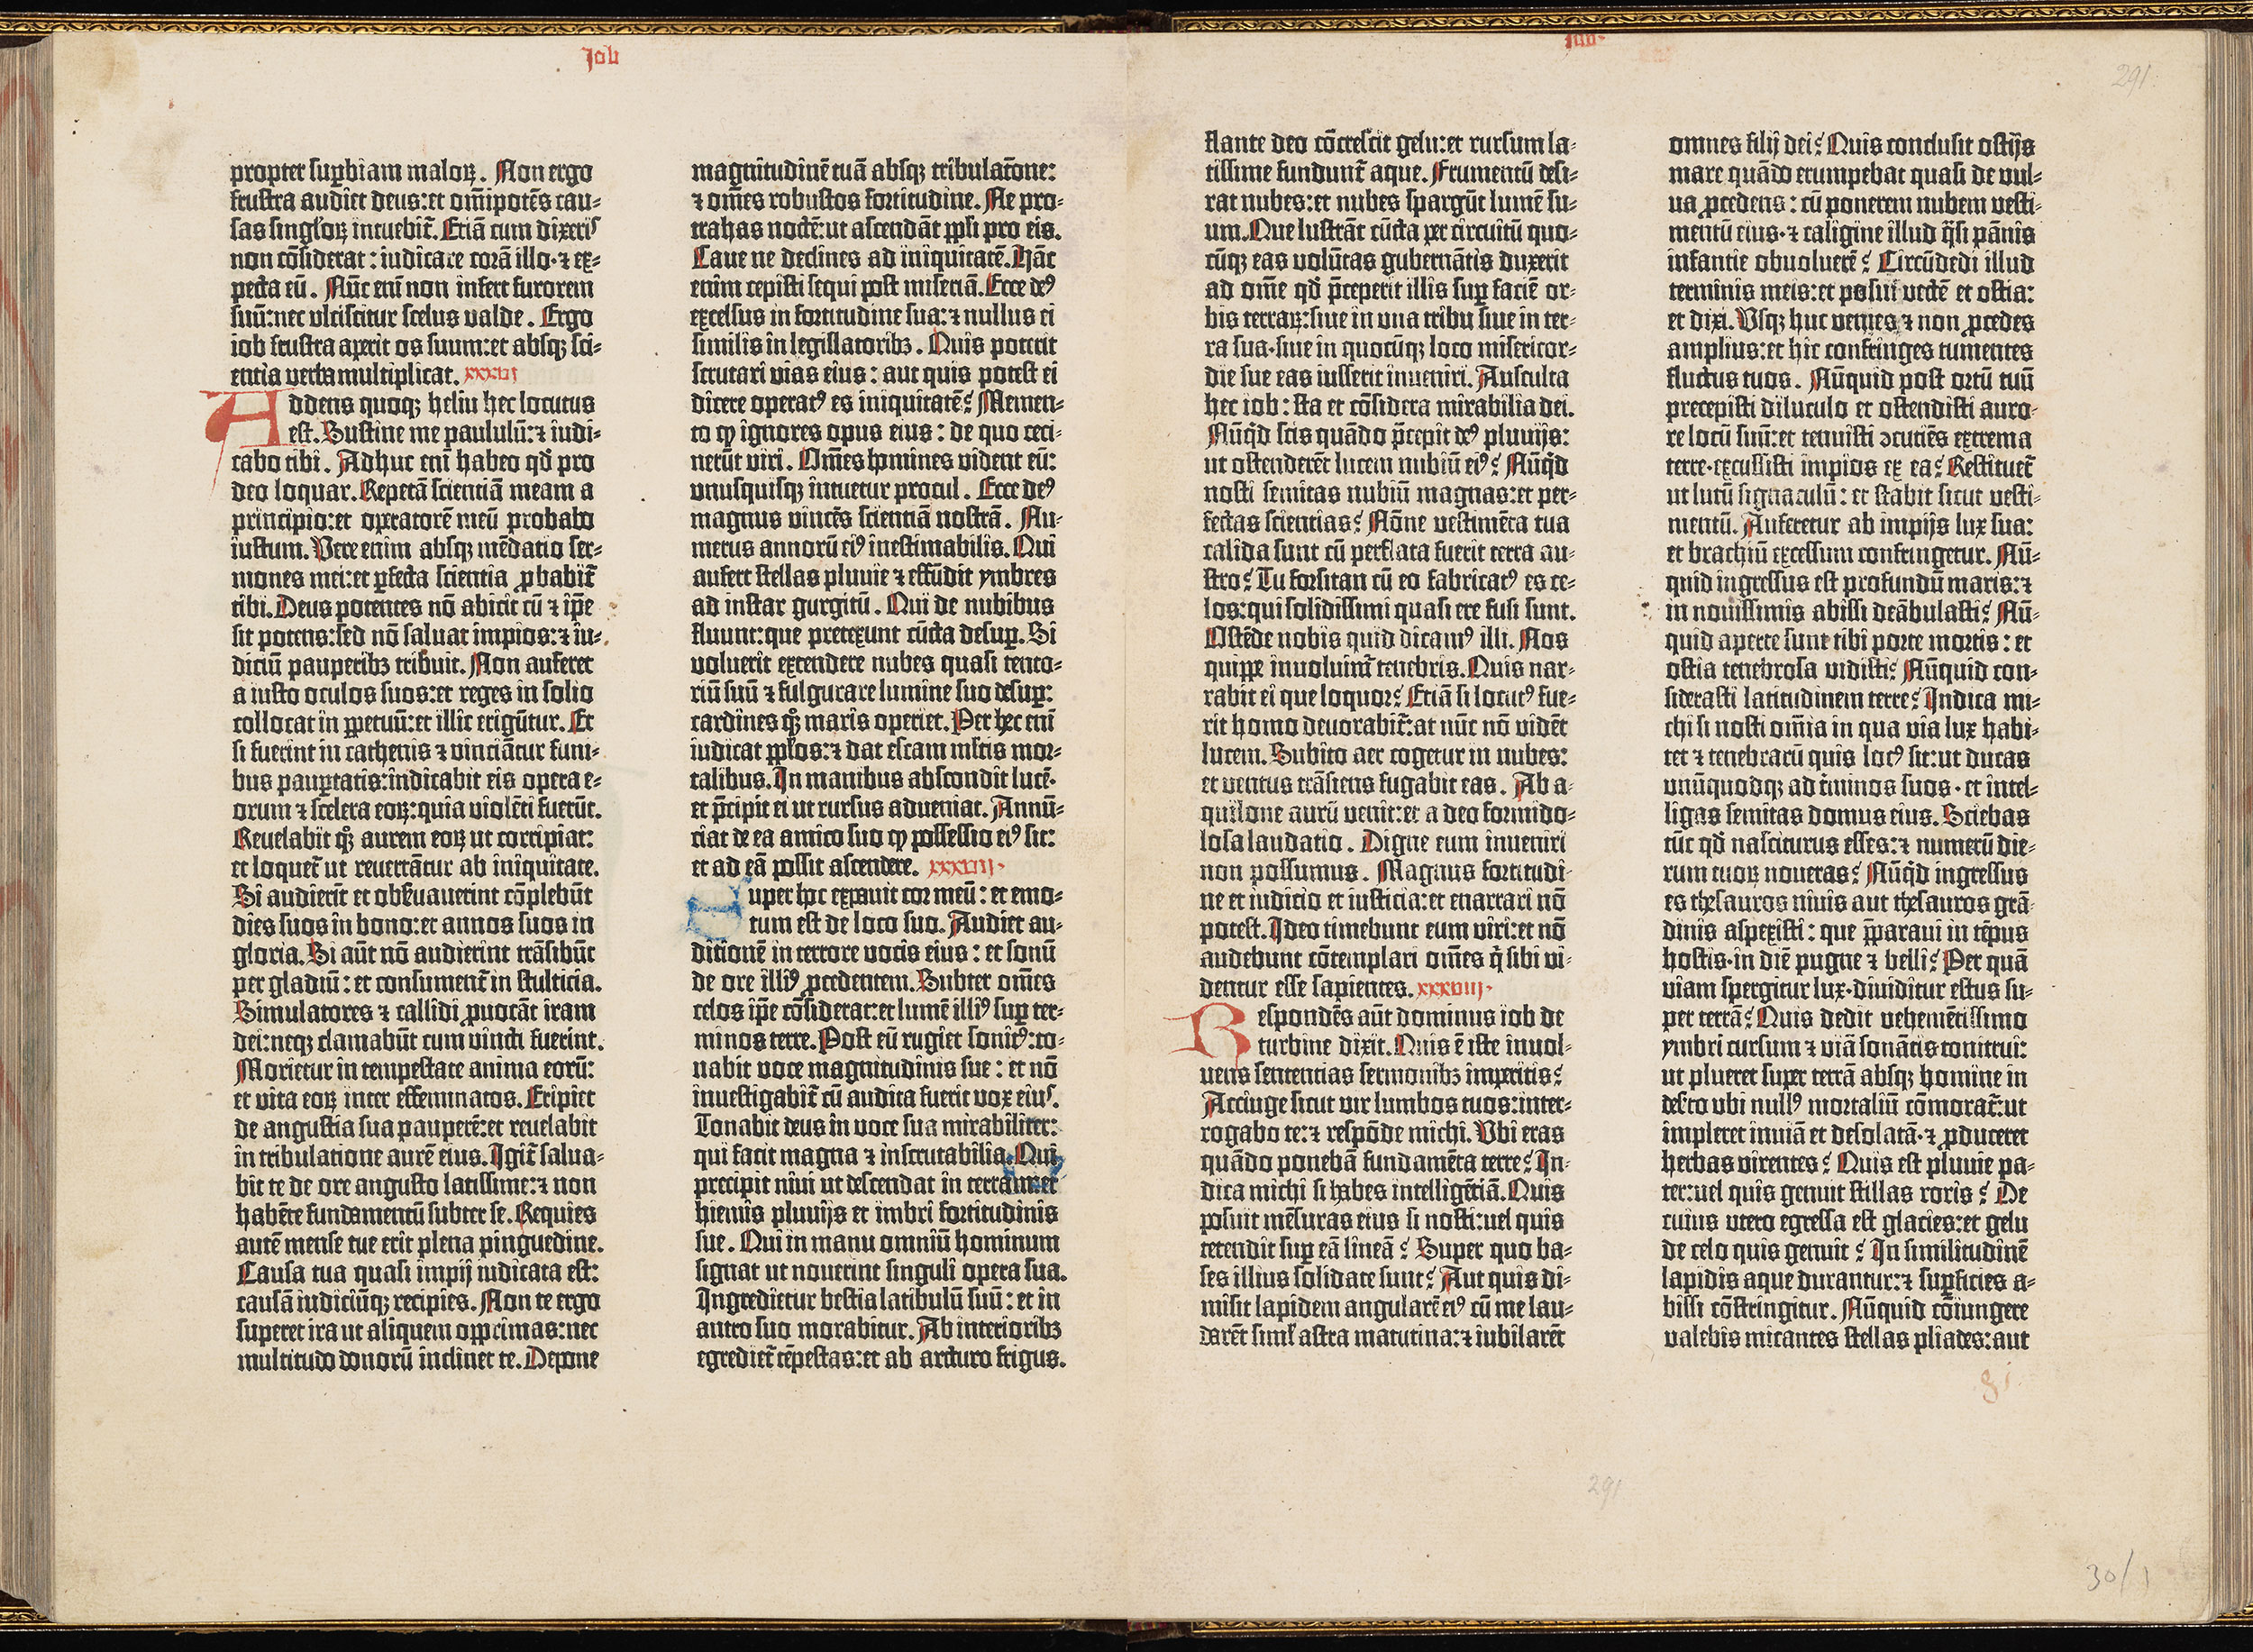 Job
propter suꝑbiam maloꝝ. Non ergo
frustra audiet deus:et om̄ipotēs cau-
sas singl̓oꝝ intuebit᷑. Etiā cum dixeris
non cōsiderat : iudicare corā illo·⁊ ex-
pecta eū. Nūc enī non infert furorem
suū:nec ulciscitur scelus valde. Ergo
iob frustra aperit os suum:et absqꝫ sci-
entia verba multiplicat. xxxvi
Addens quoqꝫ heliu hec locutus
est. Sustine me paululū:⁊ iudi-
cabo tibi. Adhuc enī habeo qd̓ pro
deo loquar. Repetā scientiā meam a
principio:et operatorē meū probabo
iustum. Vere enim absqꝫ mēdatio ser-
mones mei:et ꝑfecta scientia ꝓbabit᷑
tibi. Deus potentes nō abicit cū ⁊ ip̄e
sit potens:sed nō saluat impios:⁊ iu-
diciū pauperibꝫ tribuit. Non auferet
a iusto oculos suos:et reges in solio
collocat in ꝑpetuū:et illic erigūtur. Et
si fuerint in cathenis ⁊ vinciātur funi-
bus pauꝑtatis:indicabit eis opera e-
orum ⁊ scelera eoꝝ:quia violēti fuerūt.
Reuelabit qͦꝫ aurem eoꝝ ut corripiat:
et loquet᷑ ut reuertātur ab iniquitate.
Si audierīt et obseruauerint cōplebūt
dies suos in bono:et annos suos in
gloria. Si aūt nō audierint trāsibūt
per gladiū : et consument᷑ in stulticia.
Simulatores ⁊ callidi ꝓuocāt iram
dei:neqꝫ clamabūt cum vincti fuerint.
Morietur in tempestate anima eorū:
et vita eoꝝ inter effeminatos. Eripiet
de angustia sua pauperē:et reuelabit
in tribulatione aurē eius. Igit᷑ salua-
bit te de ore angusto latissime:⁊ non
habēte fundamentū subter se. Requies
autē mense tue erit plena pinguedine.
Causa tua quasi impij iudicata est:
causā iudiciūqꝫ recipies. Non te ergo
superet ira ut aliquem opprimas:nec
multitudo donorū inclinet te. Depone
magnitudinē tuā absqꝫ tribulatōne:
⁊ om̄es robustos fortitudine. Ne pro-
trahas noctē:ut ascendāt ppl̓i pro eis.
Caue ne declines ad iniquitatē. Hāc
enim cepisti sequi post miseriā. Ecce deꝰ
excelsus in fortitudine sua:⁊ nullus ei
similis in legislatoribꝫ. Quis poterit
scrutari vias eius : aut quis potest ei
dicere operatꝰ es iniquitatē? Memen-
to ꝙ ignores opus eius : de quo ceci-
nerūt viri. Om̄es homines vident eū:
unusquisqꝫ intuetur procul. Ecce deꝰ
magnus vincēs scientiā nostrā. Nu-
merus annorū eiꝰ inestimabilis. Qui
aufert stellas pluuie ⁊ effūdit ymbres
ad instar gurgitū. Qui de nubibus
fluunt:que pretexunt cūcta desuꝑ. Si
voluerit extendere nubes quasi tento-
riū suū ⁊ fulgurare lumine suo desuꝑ:
cardines qͦꝫ maris operiet. Per hec enī
iudicat ppl̓os:⁊ dat escam ml̓tis mor-
talibus. In manibus abscondit lucē·
et p̄cipit ei ut rursus adueniat. Annū-
ciat de ea amico suo ꝙ possessio eiꝰ sit:
et ad eā possit ascendere. xxxvii·
Super hoc expauit cor meū : et emo-
tum est de loco suo. Audiet au-
ditionē in terrore vocis eius : et sonū
de ore illiꝰ ꝓcedentem. Subter om̄es
celos ip̄e cōsiderat:et lumē illiꝰ suꝑ ter-
minos terre. Post eū rugiet sonitꝰ:to-
nabit voce magnitudinis sue : et nō
inuestigabit᷑ cū audita fuerit vox eius.
Tonabit deus in voce sua mirabiliter:
qui facit magna ⁊ inscrutabilia. Qui
precipit niui ut descendat in terram:et
hiemis pluuijs et imbri fortitudinis
sue. Qui in manu omniū hominum
signat ut nouerint singuli opera sua.
Ingredietur bestia latibulū suū : et in
antro suo morabitur. Ab interioribꝫ
egrediet᷑ tēpestas:et ab arcturo frigus.
Job·
291
flante deo cōcrescit gelu:et rursum la-
tissime fundunt᷑ aque. Frumentū desi-
rat nubes:et nubes spargūt lumē su-
um. Que lustrāt cūcta per circuitū quo-
cūqꝫ eas volūtas gubernātis duxerit
ad om̄e qd̓ p̄ceperit illis suꝑ faciē or-
bis terraꝝ:siue in una tribu siue in ter-
ra sua·siue in quocūqꝫ loco misericor-
die sue eas iusserit inueniri. Ausculta
hec iob : sta et cōsidera mirabilia dei.
Nūqͥd scis quādo p̄cepit deꝰ pluuijs:
ut ostenderēt lucem nubiū eiꝰ? Nūqͥd
nosti semitas nubiū magnas:et per-
fectas scientias? Nōne vestimēta tua
calida sunt cū perflata fuerit terra au-
stro? Tu forsitan cū eo fabricatꝰ es ce-
los:qui solidissimi quasi ere fusi sunt.
Ostēde nobis quid dicamꝰ illi. Nos
quippe inuoluim᷑ tenebris. Quis nar-
rabit ei que loquor? Etiā si locutꝰ fue-
rit homo deuorabit᷑:at nūc nō vidēt
lucem. Subito aer cogetur in nubes:
et ventus trāsiens fugabit eas. Ab a-
quilone aurū venit:et a deo formido-
losa laudatio. Digne eum inueniri
non possumus. Magnus fortitudi-
ne et iudicio et iusticia:et enarrari nō
potest. Ideo timebunt eum viri:et nō
audebunt cōtemplari om̄es qͥ sibi vi-
dentur esse sapientes. xxxviii·
Respondēs aūt dominus iob de
turbine dixit. Quis ē iste inuol-
uens sententias sermonibꝫ imperitis?
Accinge sicut vir lumbos tuos:inter-
rogabo te:⁊ respōde michi. Ubi eras
quādo ponebā fundamēta terre? In-
dica michi si habes intelligētiā. Quis
posuit mēsuras eius si nosti:uel quis
tetendit suꝑ eā lineā? Super quo ba-
ses illius solidate sunt? Aut quis di-
misit lapidem angularē eiꝰ cū me lau-
darēt siml̓ astra matutina:⁊ iubilarēt
omnes filij dei? Quis conclusit ostijs
mare quādo erumpebat quasi de vul-
ua ꝓcedens : cū ponerem nubem vesti-
mentū eius·⁊ caligine illud q̄si pānis
infantie obuoluerē? Circūdedi illud
terminis meis:et posui vectē et ostia:
et dixi. Vsqꝫ huc venies ⁊ non ꝓcedes
amplius:et hic confringes tumentes
fluctus tuos. Nūquid post ortū tuū
precepisti diluculo et ostendisti auro-
re locū suū:et tenuisti ꝯcutiēs extrema
terre·excussisti impios ex ea? Restituet᷑
ut lutū signaculū : et stabit sicut vesti-
mentū. Auferetur ab impijs lux sua:
et brachiū excelsum confringetur. Nū-
quid ingressus est profundū maris:⁊
in nouissimis abissi deābulasti? Nū-
quid aperte sunt tibi porte mortis : et
ostia tenebrosa vidisti? Nūquid con-
siderasti latitudinem terre? Indica mi-
chi si nosti om̄ia in qua via lux habi-
tet ⁊ tenebrarū quis locꝰ sit:ut ducas
unūquodqꝫ ad t̓minos suos·et intel-
ligas semitas domus eius. Sciebas
tūc qd̓ nasciturus esses:⁊ numerū die-
rum tuoꝝ noueras? Nūqͥd ingressus
es thesauros niuis aut thesauros grā-
dinis aspexisti : que p̄paraui in tēpus
hostis·in diē pugne ⁊ belli? Per quā
viam spergitur lux·diuiditur estus su-
per terrā? Quis dedit vehemētissimo
ymbri cursum ⁊ viā sonātis tonitrui:
ut plueret super terrā absqꝫ homine in
des̓to ubi nullꝰ mortaliū cōmorat᷑:ut
impleret inuiā et desolatā·⁊ ꝓduceret
herbas virentes? Quis est pluuie pa-
ter:uel quis genuit stillas roris? De
cuius utero egressa est glacies:et gelu
de celo quis genuit? In similitudinē
lapidis aque durantur:⁊ suꝑficies a-
bissi cōstringitur. Nūquid cōiungere
valebis micantes stellas pliades:aut
291
30/1